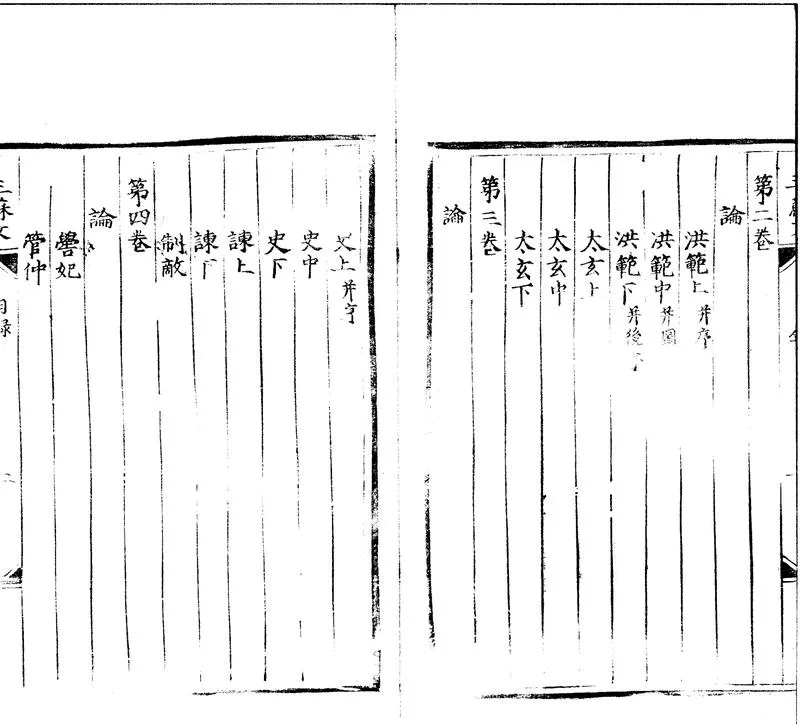 第二卷
論
洪範上 并序
洪範中 并圖
洪範下 并後序
太玄上
太玄中
太玄下
第三卷
論
史上 并序
史中
史下
諫上
諫下
制敵
第四卷
論
嚳妃
管仲
三蘇文
目録
二